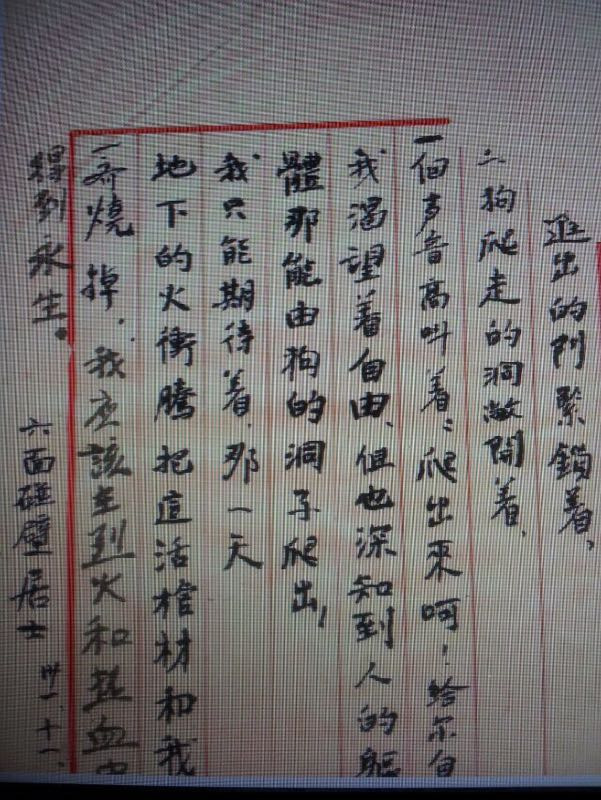 進出的門緊鎖着、
狗爬走的洞敞開着、
一個声音高叫着：爬出來呵！給尔自
我渴望着自由、但也深知到人的軀
體那能由狗的洞子爬出！
我只能期待着、那一天
地下的火衝騰把這活棺材和我
一齊燒掉、我应該在烈火和热血中
得到永生。
六面碰壁居士 卅一、十一、